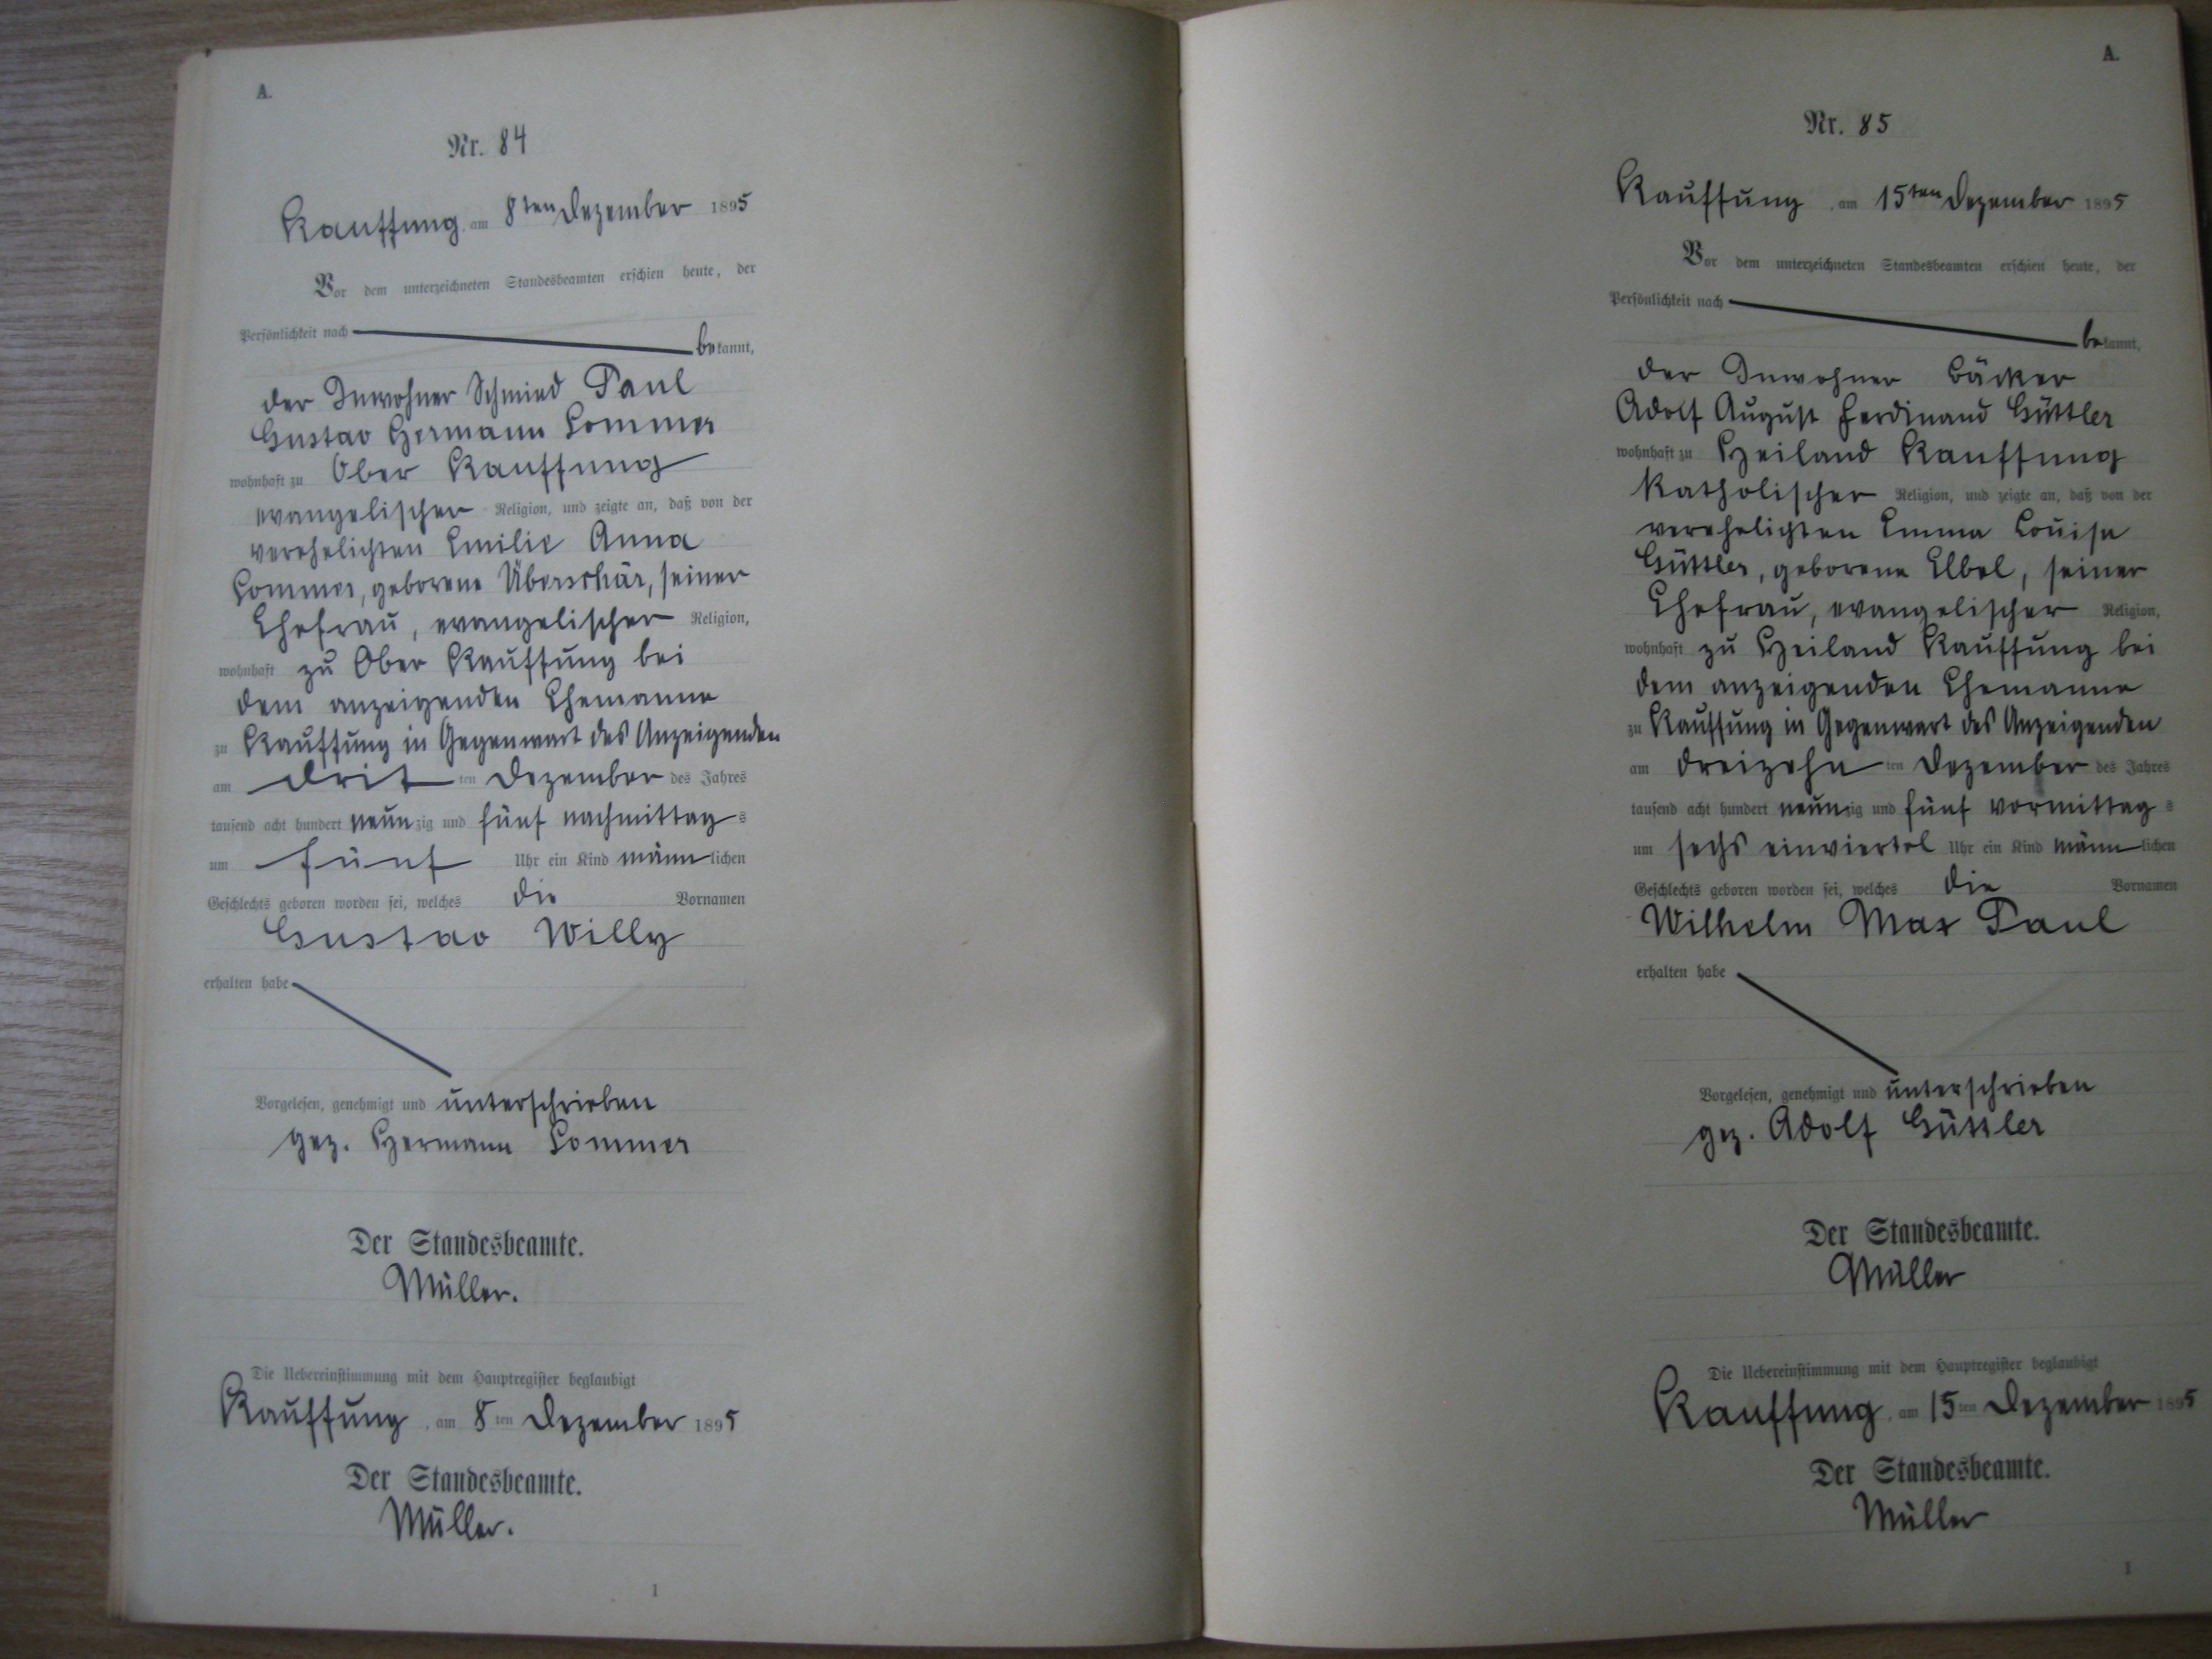 A.
Nr. 84
Kauffung, am 8ten Dezember 1895
Vor dem unterzeichneten Standesbeamten erschien heute, der
Persönlichkeit nach
bekannt,
der Inwohner Schmied Paul
Gustav Hermann Sommer
wohnhaft zu Ober Kauffung
evangelischer Religion, und zeigte an, daß von der
verehelichten Emilie Anna
Sommer, geborene Überschär, seiner
Ehefrau, evangelischer Religion,
wohnhaft zu Ober Kauffung bei
dem anzeigenden Ehemanne
zu Kauffung in Gegenwart des Anzeigenden
am dritten Dezember des Jahres
tausend acht hundert neunzig und fünf nachmittags
um fünf Uhr ein Kind männlichen
Geschlechts geboren worden sei, welches die Vornamen
Gustav Willy
erhalten habe
Vorgelesen, genehmigt und unterschrieben
gez. Hermann Sommer
Der Standesbeamte.
Müller.
Die Uebereinstimmung mit dem Hauptregister beglaubigt
Kauffung, am 8ten Dezember 1895
Der Standesbeamte.
Müller.
1
A.
Nr. 85
Kauffung, am 15ten Dezember 1895
Vor dem unterzeichneten Standesbeamten erschien heute, der
Persönlichkeit nach
bekannt,
der Inwohner Bäcker
Adolf August Ferdinand Güttler
wohnhaft zu Heiland Kauffung
katholischer Religion, und zeigte an, daß von der
verehelichten Emma Louise
Güttler, geborene Elbel, seiner
Ehefrau, evangelischer Religion,
wohnhaft zu Heiland Kauffung bei
dem anzeigenden Ehemanne
zu Kauffung in Gegenwart des Anzeigenden
am dreizehnten Dezember des Jahres
tausend acht hundert neunzig und fünf vormittags
um sechs einviertel Uhr ein Kind männlichen
Geschlechts geboren worden sei, welches die Vornamen
Wilhelm Max Paul
erhalten habe
Vorgelesen, genehmigt und unterschrieben
gez. Adolf Güttler
Der Standesbeamte.
Müller
Die Uebereinstimmung mit dem Hauptregister beglaubigt
Kauffung, am 15ten Dezember 1895
Der Standesbeamte.
Müller
1